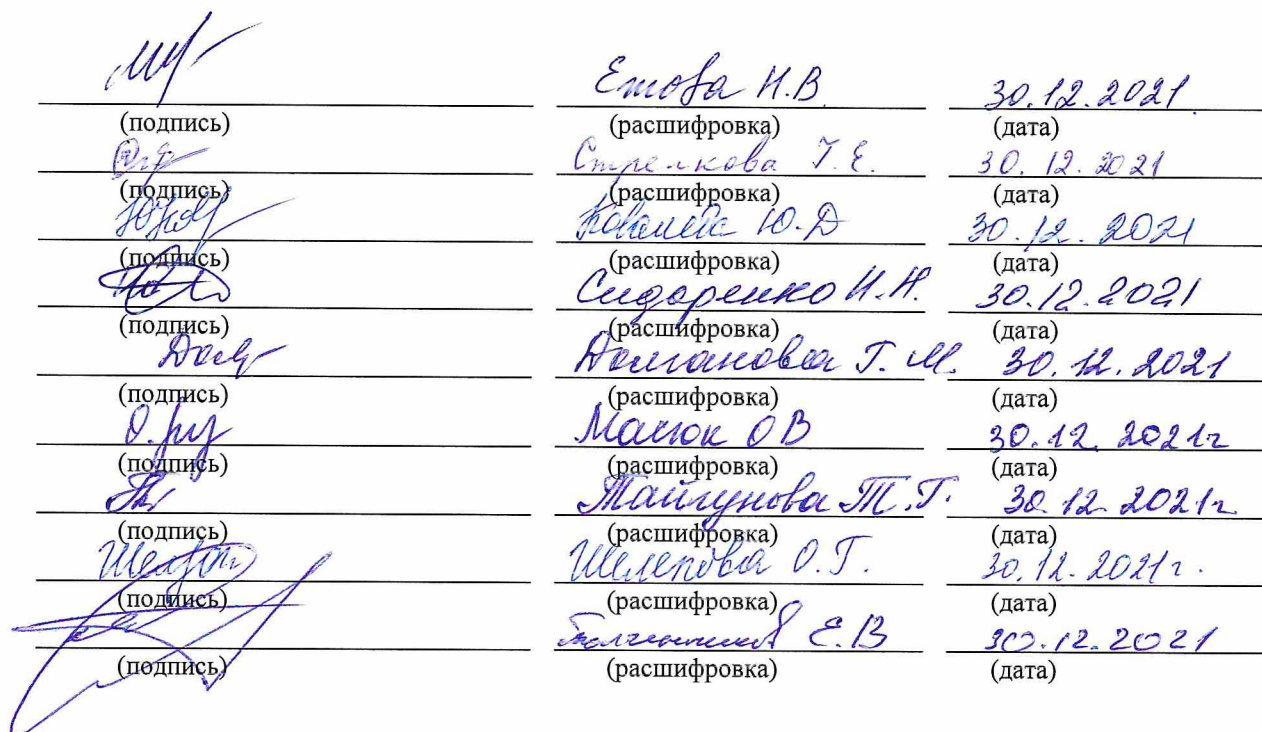 Ежова Н.В. 30.12.2021
(подпись) (расшифровка) (дата)
Стрелкова Т.Е. 30.12.2021
(подпись) (расшифровка) (дата)
Ковалева Ю.Д 30.12.2021
(подпись) (расшифровка) (дата)
Сидоренко Н.Н. 30.12.2021
(подпись) (расшифровка) (дата)
Долганова Г.М. 30.12.2021
(подпись) (расшифровка) (дата)
Масюк ОВ 30.12.2021г
(подпись) (расшифровка) (дата)
Тайгунова Т.Г. 30.12.2021г
(подпись) (расшифровка) (дата)
Шелепова О.Г. 30.12.2021г.
(подпись) (расшифровка) (дата)
Е.В 30.12.2021
(подпись) (расшифровка) (дата)